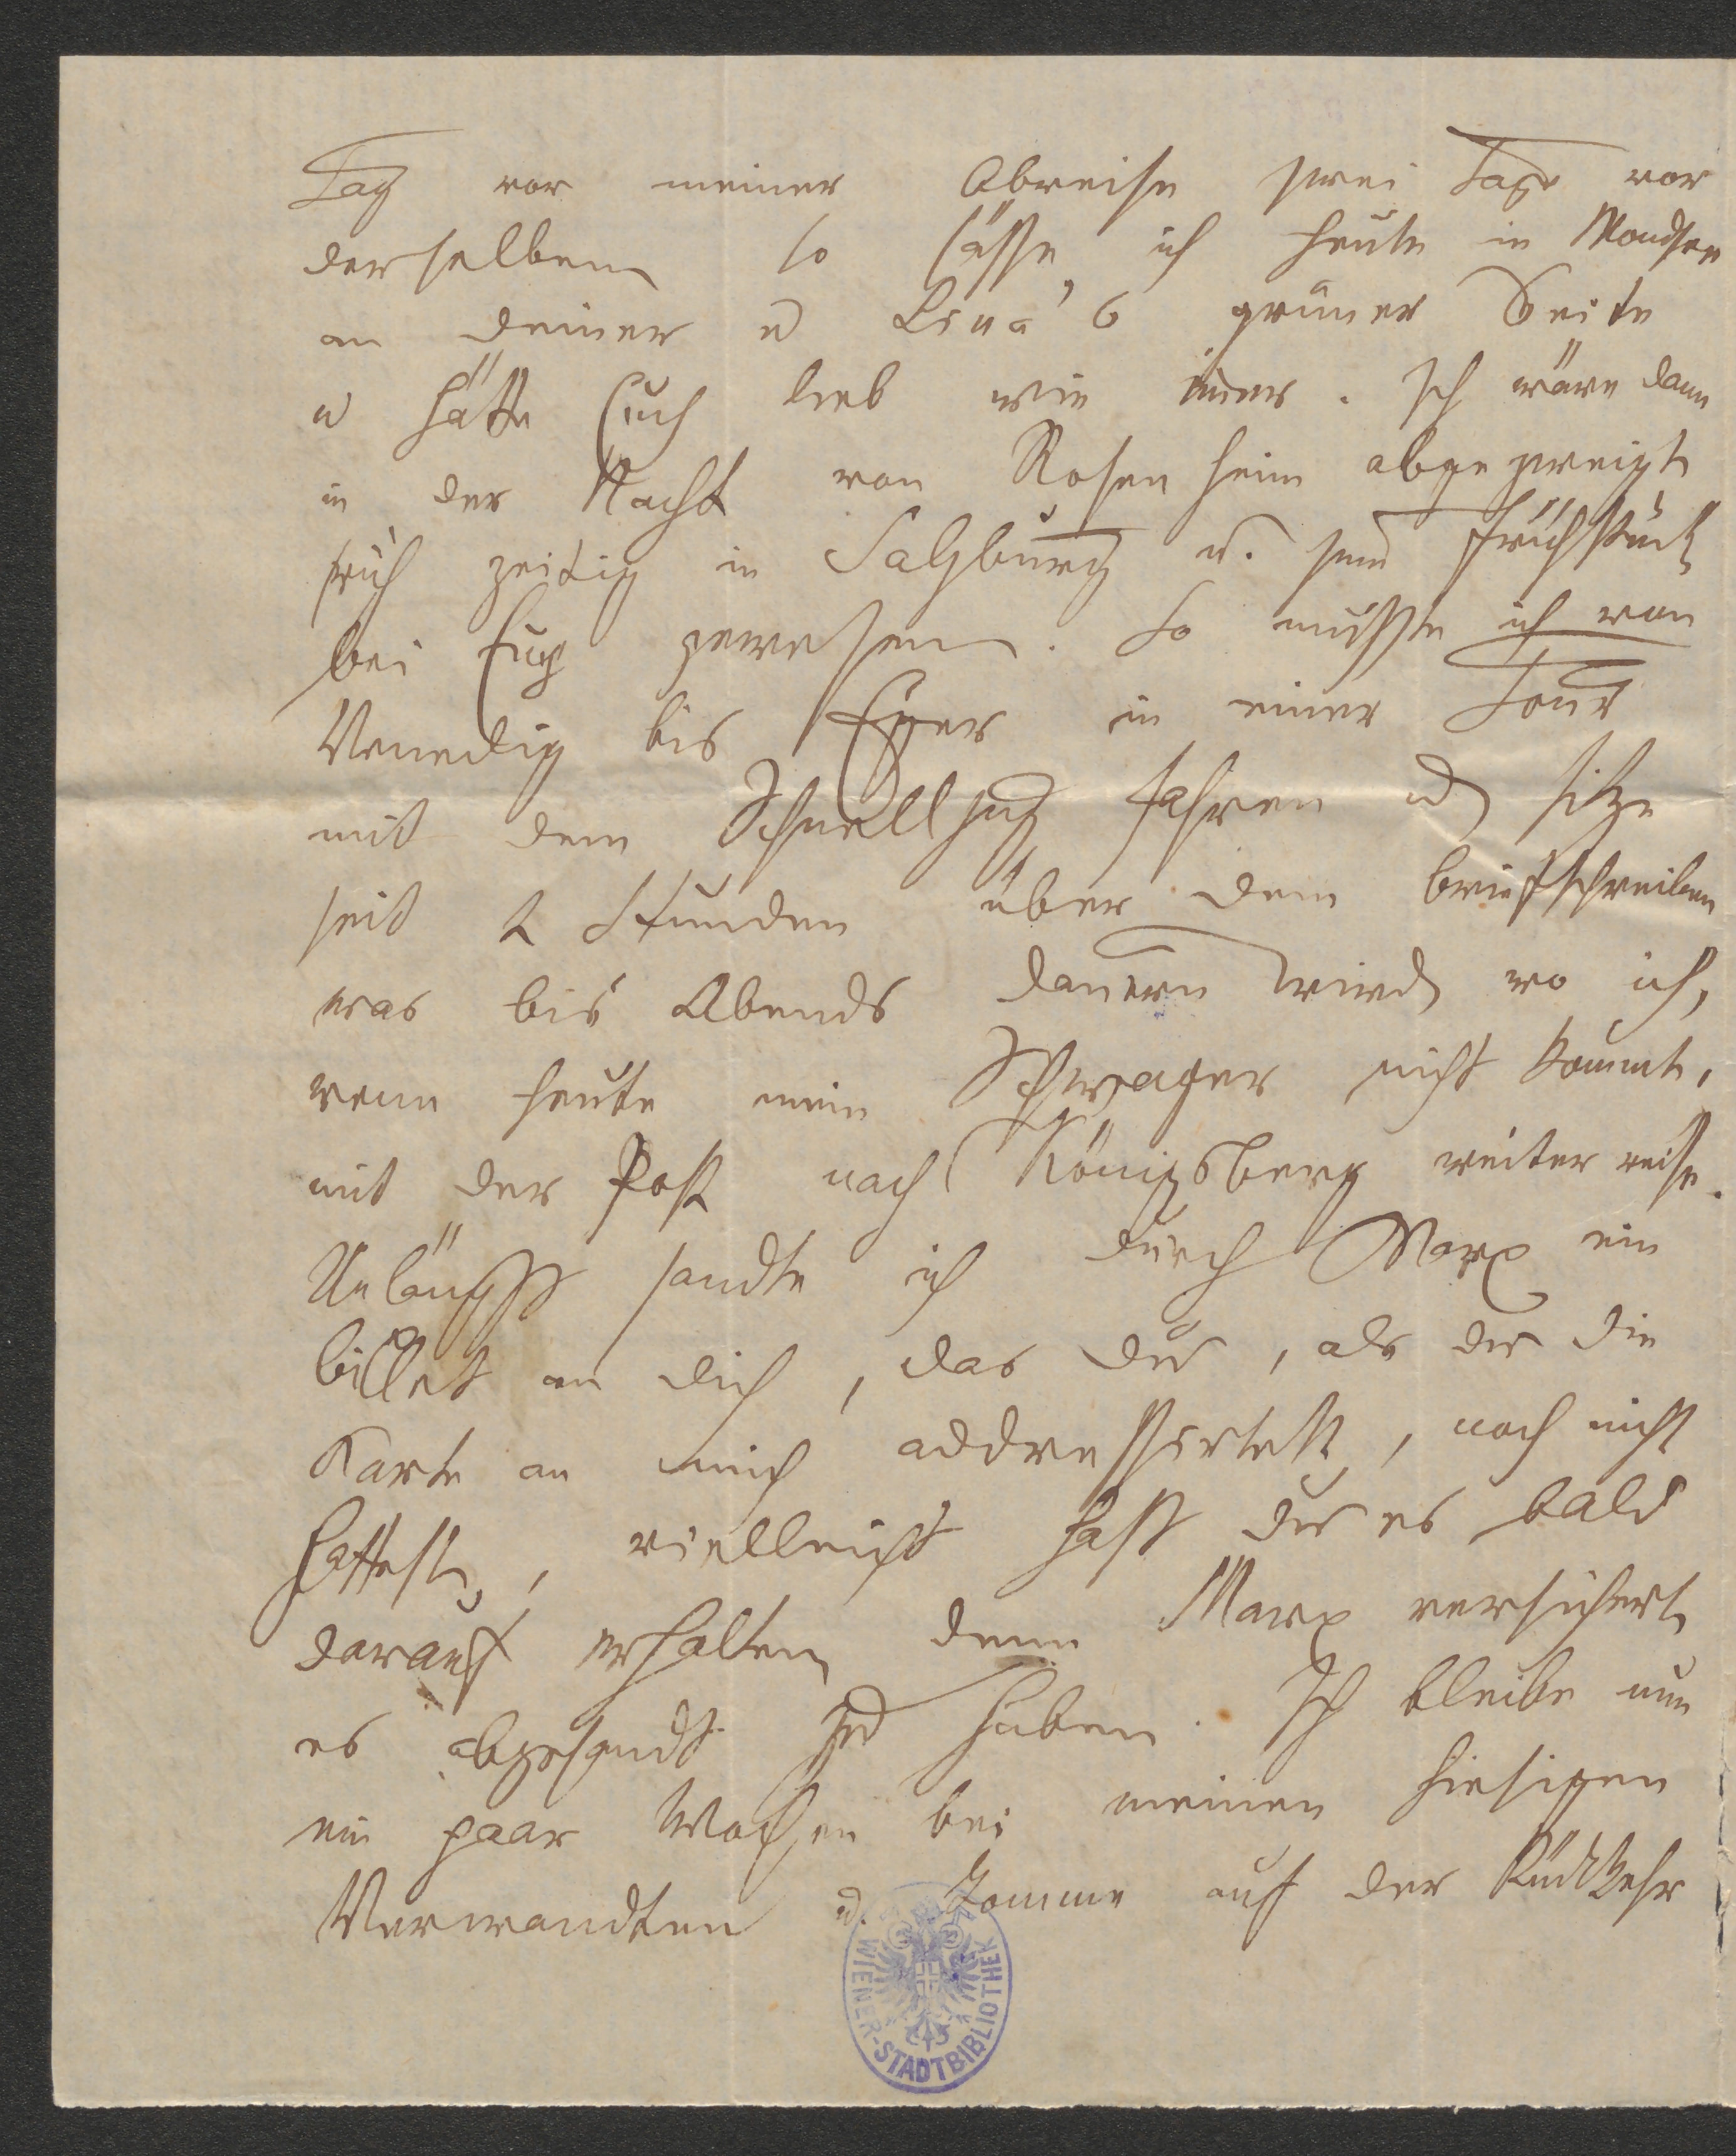 Tag vor meiner Abreise zwei Tage vor
derselben so sässe ich heute in Mondsee
an deiner u Lina's grüner Seite
u hätte Euch lieb wie immer. Ich wäre dann
in der Nacht von Rosenheim abgezweigt
früh zeitig in Salzburg u. zum Frühstück
bei Euch gewesen. So musste ich von
Venedig bis Eger in einer Tour
mit dem Schnellzug fahren u sitze
seit 2 Stunden über dem briefschreiben
was bis Abends dauern wird, wo ich,
wenn heute mein Schwager nicht kommt,
mit der Post nach Königsberg weiter reise.
Unlängst sandte ich durch Marx ein
billet an dich, das du, als du die
Karte an mich addressirtest, noch nicht
hattest, vielleicht hast du es bald
darauf erhalten, denn Marx versichert
es abgesandt zu haben. Ich bleibe nun
ein paar Wochen bei meinen hiesigen
Verwandten u. komme auf der Rückkehr
WIENER-STADTBIBLIOTHEK